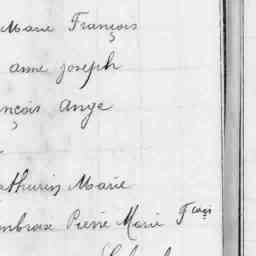 Marie François
anne joseph
nçois ange
athurin Marie
mbroise Pierre Marie Fçois